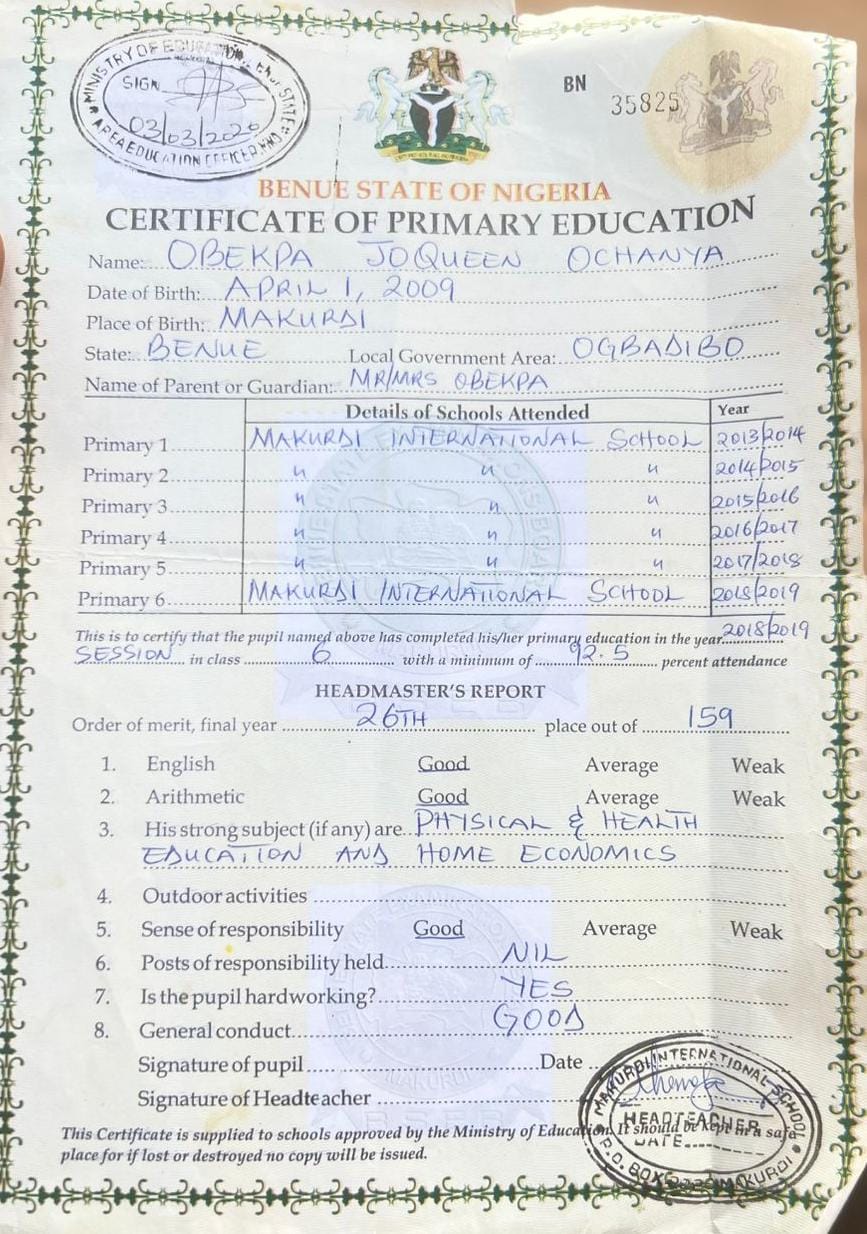 MINISTRY OF EDUCATION, BENUE STATE
SIGN
03/03/2020
AREA EDUCATION OFFICER, MKD
BN 35825
BENUE STATE OF NIGERIA
CERTIFICATE OF PRIMARY EDUCATION
Name: OBEKPA JOQUEEN OCHANYA
Date of Birth: APRIL 1, 2009
Place of Birth: MAKURDI
State: BENUE Local Government Area: OGBADIBO
Name of Parent or Guardian: MR/MRS OBEKPA
Details of Schools Attended Year
Primary 1 MAKURDI INTERNATIONAL SCHOOL 2013/2014
Primary 2 " " " 2014/2015
Primary 3 " " " 2015/2016
Primary 4 " " " 2016/2017
Primary 5 " " " 2017/2018
Primary 6 MAKURDI INTERNATIONAL SCHOOL 2018/2019
This is to certify that the pupil named above has completed his/her primary education in the year 2018/2019
SESSION in class 6 with a minimum of 92.5 percent attendance
HEADMASTER'S REPORT
Order of merit, final year 26TH place out of 159
1. English Good Average Weak
2. Arithmetic Good Average Weak
3. His strong subject (if any) are PHYSICAL & HEALTH
EDUCATION AND HOME ECONOMICS
4. Outdoor activities
5. Sense of responsibility Good Average Weak
6. Posts of responsibility held NIL
7. Is the pupil hardworking? YES
8. General conduct GOOD
Signature of pupil Date
Signature of Headteacher
MAKURDI INTERNATIONAL SCHOOL
HEADTEACHER
DATE
P.O. BOX MAKURDI
This Certificate is supplied to schools approved by the Ministry of Education. It should be kept in a safe
place for if lost or destroyed no copy will be issued.